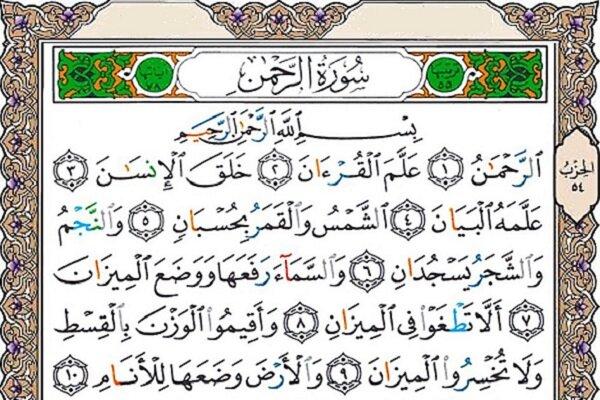 ترتيبها ٥٥ سُورَةُ الرَّحْمٰن آياتها ٧٨
بِسْمِ اللَّهِ الرَّحْمَٰنِ الرَّحِيمِ
الرَّحْمَٰنُ ١ عَلَّمَ الْقُرْءَانَ ٢ خَلَقَ الْإِنسَٰنَ ٣
عَلَّمَهُ الْبَيَانَ ٤ الشَّمْسُ وَالْقَمَرُ بِحُسْبَانٍ ٥ وَالنَّجْمُ
وَالشَّجَرُ يَسْجُدَانِ ٦ وَالسَّمَآءَ رَفَعَهَا وَوَضَعَ الْمِيزَانَ
٧ أَلَّا تَطْغَوْا فِي الْمِيزَانِ ٨ وَأَقِيمُوا الْوَزْنَ بِالْقِسْطِ
وَلَا تُخْسِرُوا الْمِيزَانَ ٩ وَالْأَرْضَ وَضَعَهَا لِلْأَنَامِ ١٠
الحزب
٥٤